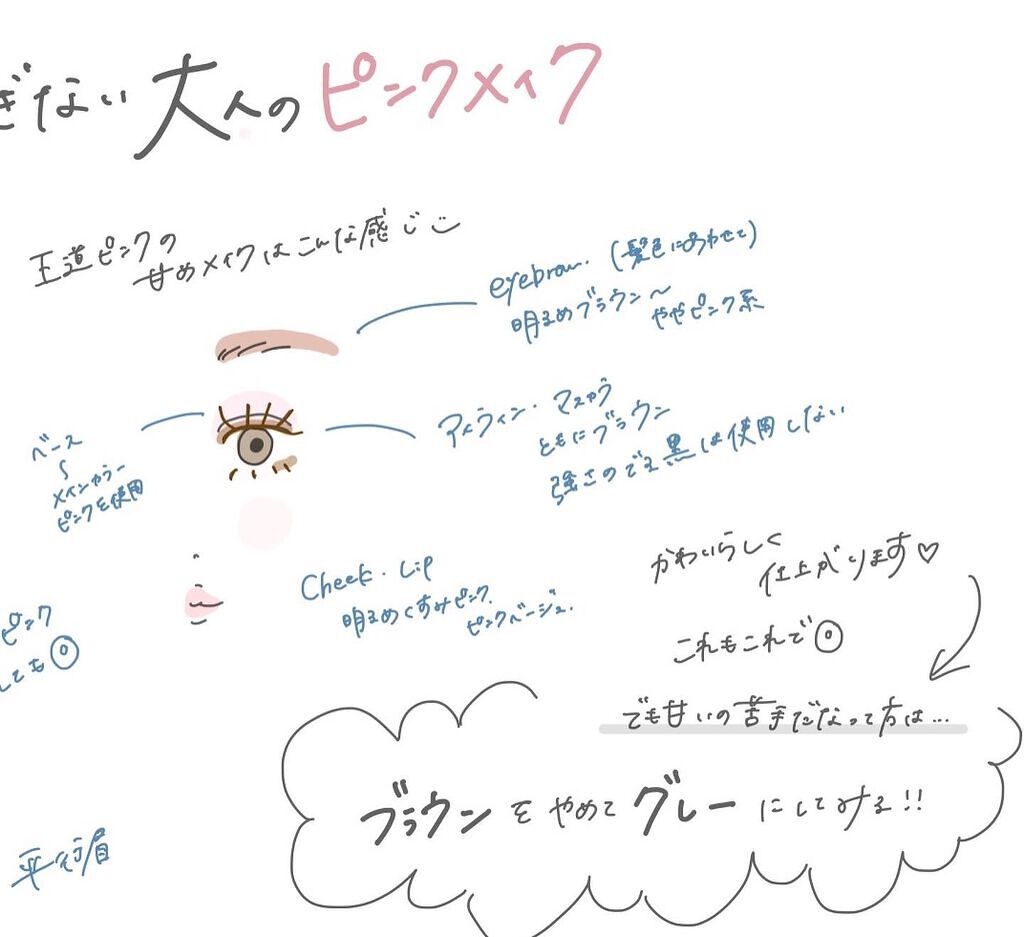 ぎない大人のピンクメイク
王道ピンクの
甘めメイクはこんな感じ
eyebrow. (髪色にあわせて)
明るめブラウン〜
ややピンク系
ベース
〜
メインカラー
ピンクを使用
アイライン・マスカラ
ともにブラウン
強さのでる黒は使用しない
Cheek・Lip
明るめくすみピンク.
ピンクベージュ.
かわいらしく
仕上がります♡
これもこれで◎
ピンク
しても◎
でも甘いの苦手だなって方は...
ブラウンをやめてグレーにしてみる!!
平行眉